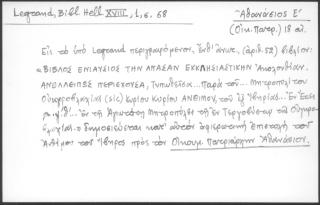 Legrand, Bibl. Hell XVIII, 1, σ. 68
Ἀθανάσιος Ε΄
(Οἰκ. Πατρ.) 18 αἰ.
Εἰς τὸ ὑπὸ Legrand περιγραφόμενον, ἔνθ' ἄνωτ., (ἀριθ. 52) βιβλίον:
«ΒΙΒΛΟΣ ΕΝΙΑΥΣΙΟΣ ΤΗΝ ΑΠΑΣΑΝ ΕΚΚΛΗΣΙΑΣΤΙΚΗΝ Ἀκολουθίαν
ΑΝΕΛΛΕΙΠΩΣ ΠΕΡΙΕΧΟΥΣΑ, Τυπωθεῖσα... παρὰ τοῦ... Μητροπολίτου
Οὐγκροβλαχίας (sic) Κυρίου Κυρίου ΑΝΘΙΜΟΥ, τοῦ ἐξ Ἰβηρίας... Ἐν Ἔτει
... Ἐν τῇ Ἁγιωτάτῃ Μητροπόλει τῇ ἐν Τεργοβύστῳ τῆς Οὐγκρο-
βλαχίας» δημοσιεύεται κατ' αὐτὸν ἀφιερωτικὴ ἐπιστολὴ τοῦ
Ἀνθίμου τοῦ Ἴβηρος πρὸς τὸν Οἰκουμ. Πατριάρχην Ἀθανάσιον.